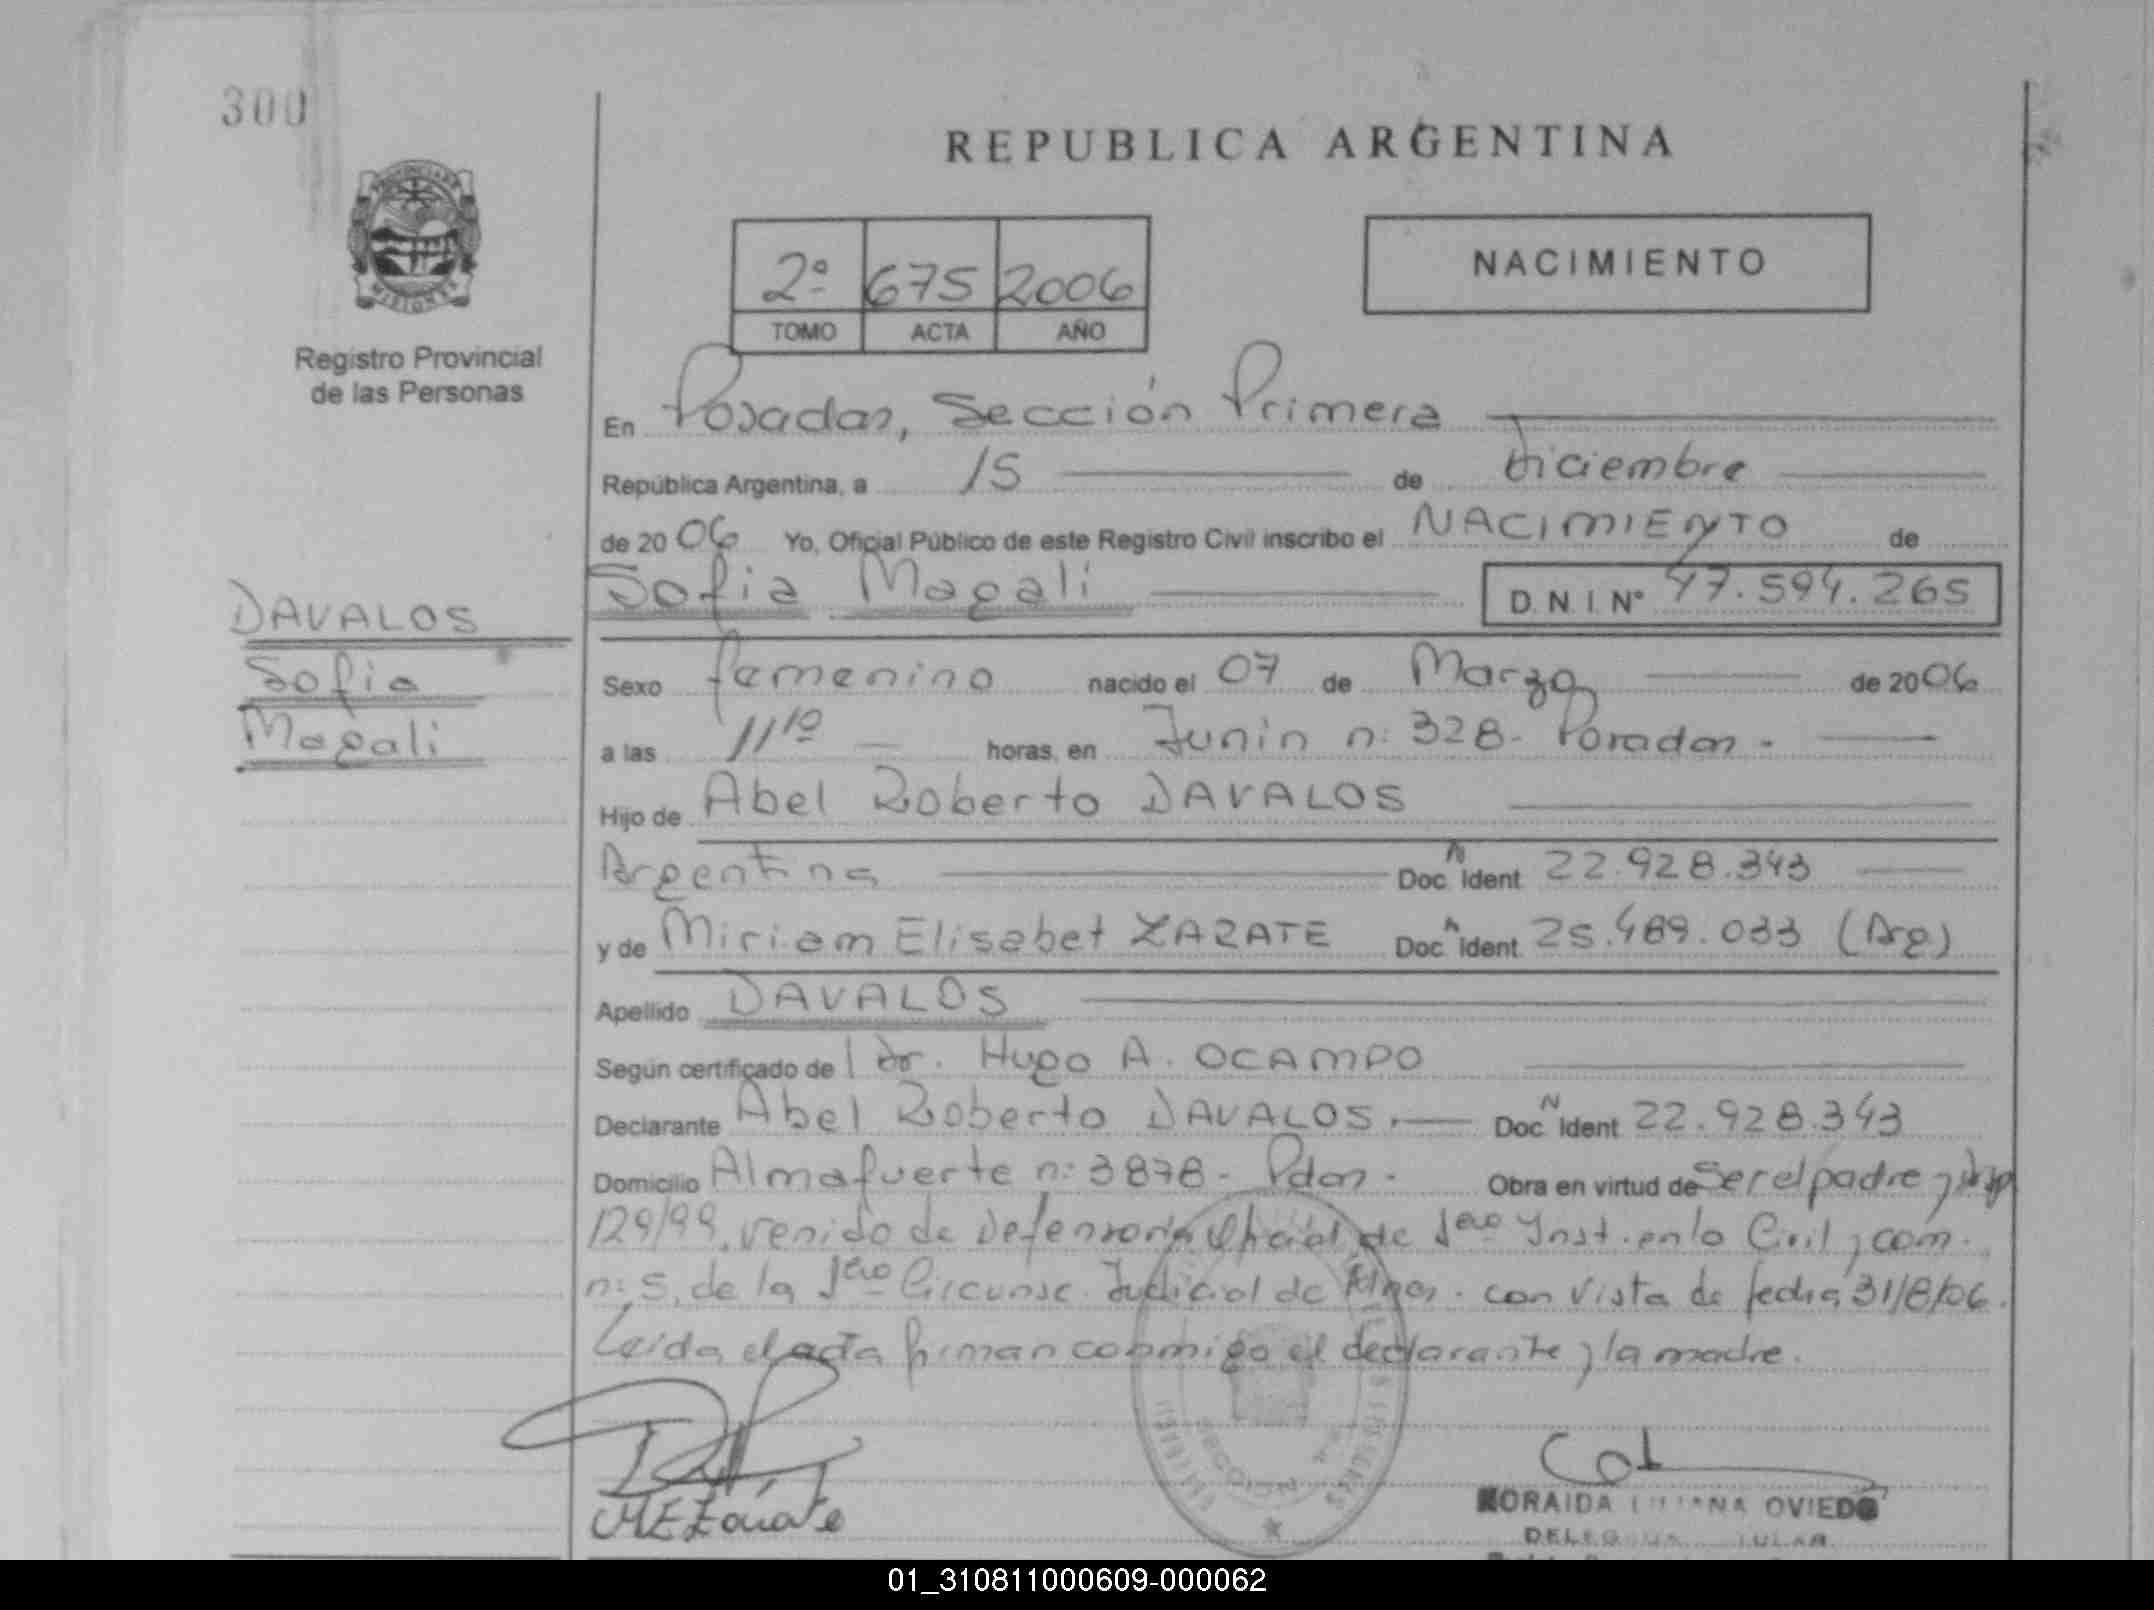 300
REPUBLICA ARGENTINA
PROVINCIA DE MISIONES
Registro Provincial
de las Personas
2º 675 2006
TOMO ACTA AÑO
NACIMIENTO
En Posadas, Sección Primera
República Argentina, a 15 de diciembre
de 2006 Yo, Oficial Público de este Registro Civil inscribo el NACIMIENTO de
Sofia Magali D.N.I. Nº 47.594.265
DAVALOS
Sofia
Magali
Sexo femenino nacido el 07 de Marzo de 2006
a las 11¹⁰ horas, en Junin n: 328- Posadas.
Hijo de Abel Roberto DAVALOS
Argentina Doc N Ident 22.928.343
y de Miriam Elisabet ZARATE Doc N Ident. 25.489.033 (Arg)
Apellido DAVALOS
Según certificado de Dr. Hugo A. OCAMPO
Declarante Abel Roberto DAVALOS. Doc N Ident 22.928.343
Domicilio Almafuerte n: 3878- Pdas. Obra en virtud de Ser el padre y
129/99, venido de Defensoria Oficial de 1era Inst. en lo Civil y com.
n: 5, de la 1era Circunsc. Judicial de Mnes. con vista de fecha 31/8/06.
Leida el acta firman conmigo el declarante y la madre.
MEZarate
MORAIDA LILIANA OVIEDO
DELEGADA TITULAR
01_310811000609-000062